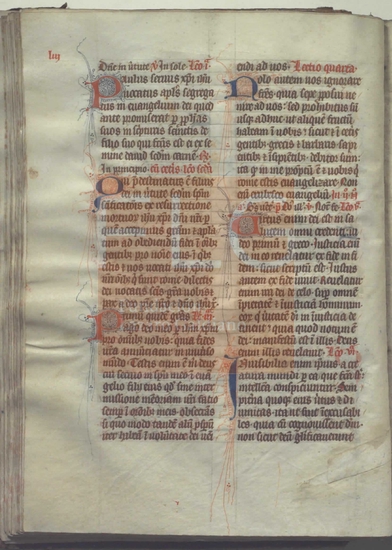 liij
Dñe in virtute ℣ In sole Lco
Paulus servus xpi ihu
vocatus apls segrega
tus in evangelium dei quod
ante promiserat per pphetas
suos in scripturis sanctis de
filio suo qui factus est ei ex se
mine david scdm carnem
In principio
Qui predestinatus est filius
dei in virtute scdm spm
sanctificationis ex resurrectione
mortuorum ihu xpi dñi nri per
quem accepimus gratiam et aplatū
cum ad obediendū fidei in oībus
gentibus pro nomine
estis et vos vocati ihu xpi
oibus qui sunt rome dilectis
dei vocatis scis gratia vobis
Primum quidem gratias
ago deo meo per ihm xpm
pro oibus vobis quia fides
vestra annuntiatur in universo
mundo Testis enim est deus
cui servio in spu meo in evan
gelio filii eius quod sine inter
missione memoriam vestri facio
semper in oronibus meis obsecrans
si quo modo tandem aliquando
iter habeam in voluntate dei veni
endi ad vos Lectio quarta
Nolo autem vos ignorare
fratres quia sepe proposui ve
nire ad vos et prohibitus sum
usque adhuc ut aliquem fructum
habeam in vobis sicut et in ceteris
gentibus grecis et barbaris sapi
entibus et insipientibus debitor sum
ita quod in me promptum est et vobis qui
rome estis evangelizare Non
enim erubesco evangelium
Virtus enim dei est in sa
lutem omni credenti iu
deo primum et greco Iusticia enim
dei in eo revelatur ex fide in fi
dem sicut scriptum est Iustus
autem ex fide vivit Revelatur
enim ira dei de celo super omnem
impietatem et iniusticiam hominum
eorum qui veritatem dei in iniusticia de
tinent quia quod notum est
dei manifestum est illis Deus
enim illis revelavit Lco
Invisibilia enim ipsius a cre
atura mundi per ea que facta sunt
intellecta conspiciuntur Sem
piterna quoque eius virtus et di
vinitas ita ut sint inexcusabi
les quia cum cognovissent deum
non sicut deum glorificaverunt